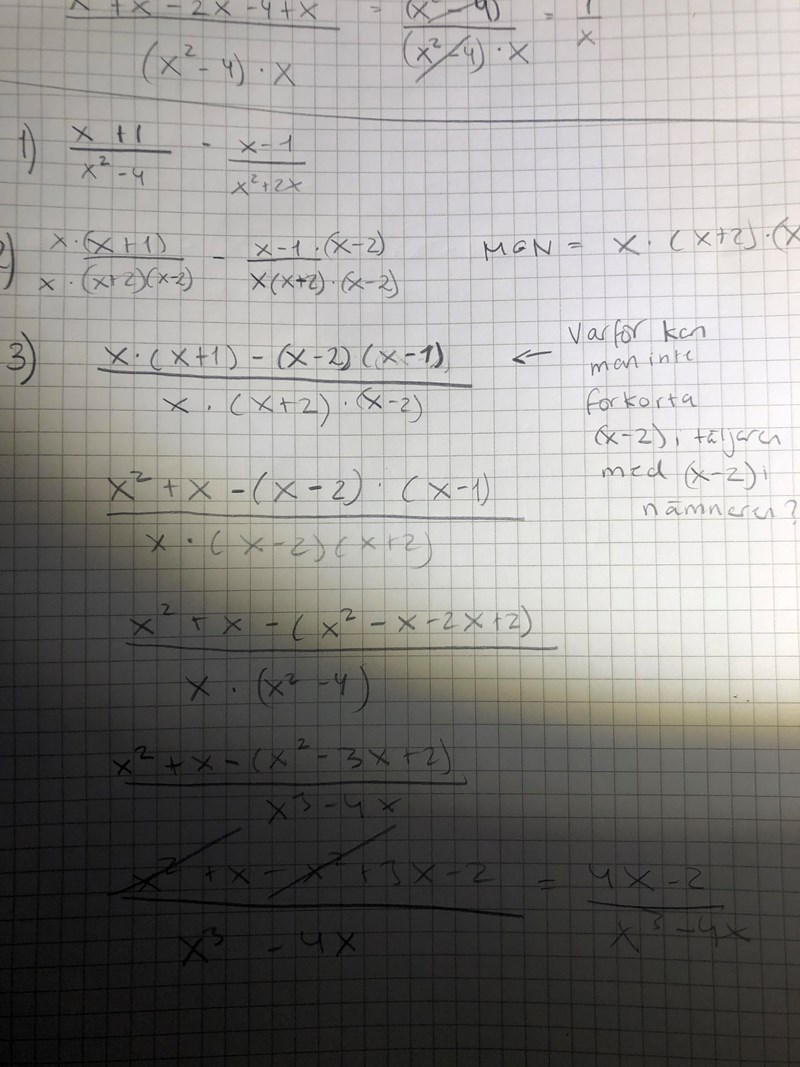 x + x - 2x - 4 + x = (x² - 4) = 1
(x² - 4) · x (x² - 4) · x x
1) x + 1 - x - 1
x² - 4 x² + 2x
2) x · (x + 1) - x - 1 · (x - 2) MGN = x · (x + 2) · (x
x · (x + 2)(x - 2) x(x + 2) · (x - 2)
3) x · (x + 1) - (x - 2)(x - 1) ←
x · (x + 2) · (x - 2)
Varför kan
man inte
förkorta
(x - 2) i täljaren
med (x - 2) i
nämnaren?
x² + x - (x - 2) · (x - 1)
x · (x - 2)(x + 2)
x² + x - (x² - x - 2x + 2)
x · (x² - 4)
x² + x - (x² - 3x + 2)
x³ - 4x
x² + x - x² + 3x - 2 = 4x - 2
x³ - 4x x³ - 4x